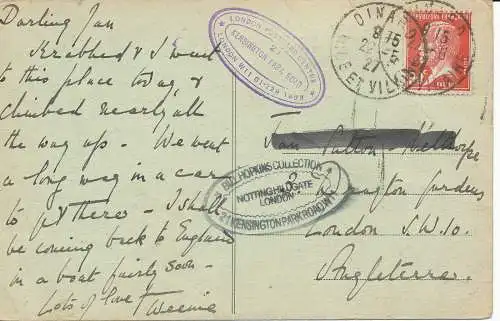 Darling Ian
Krabhed & I went
to this place today &
climbed nearly all
the way up. We went
a long way in a car
to get there - I shall
be coming back to England
in a boat fairly soon -
Lots of love Weenie
LONDON POSTCARD CENTRE
21
KENSINGTON PARK ROAD
LONDON W11
DINARD
8 15
22
27
ILLE ET VILAINE
REPUBLIQUE FRANCAISE
Ian Patton
BILL HOPKINS COLLECTION
NOTTING HILL GATE
LONDON
21 KENSINGTON PARK ROAD W11
Gardens
London S.W.10.
Angleterre